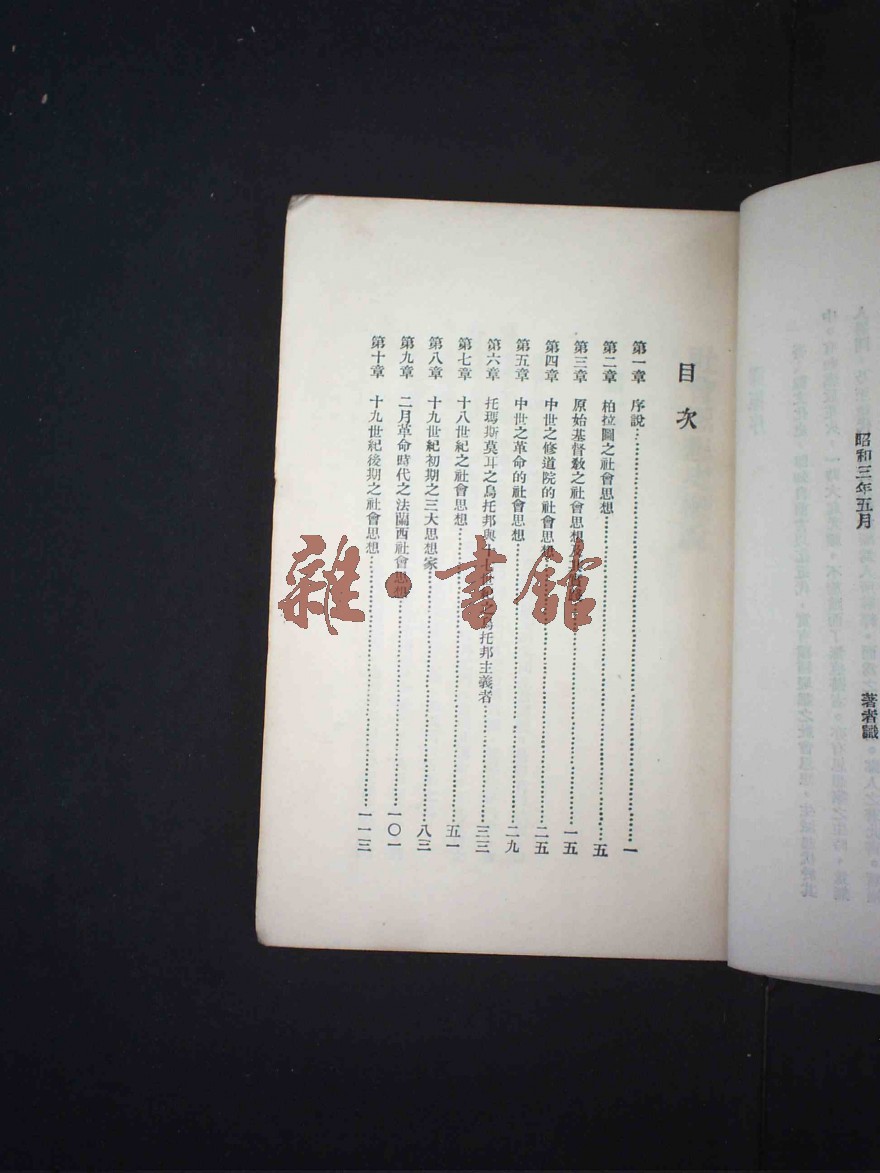 昭和三年五月
著者識
目次
第一章 序說 一
第二章 柏拉圖之社會思想 五
第三章 原始基督教之社會思想及其 一五
第四章 中世之修道院的社會思想 二五
第五章 中世之革命的社會思想 二九
第六章 托瑪斯莫耳之烏托邦與十七世紀之烏托邦主義者 三三
第七章 十八世紀之社會思想 五一
第八章 十九世紀初期之三大思想家 八三
第九章 二月革命時代之法蘭西社會思想 一〇一
第十章 十九世紀後期之社會思想 一一三
雜·書館